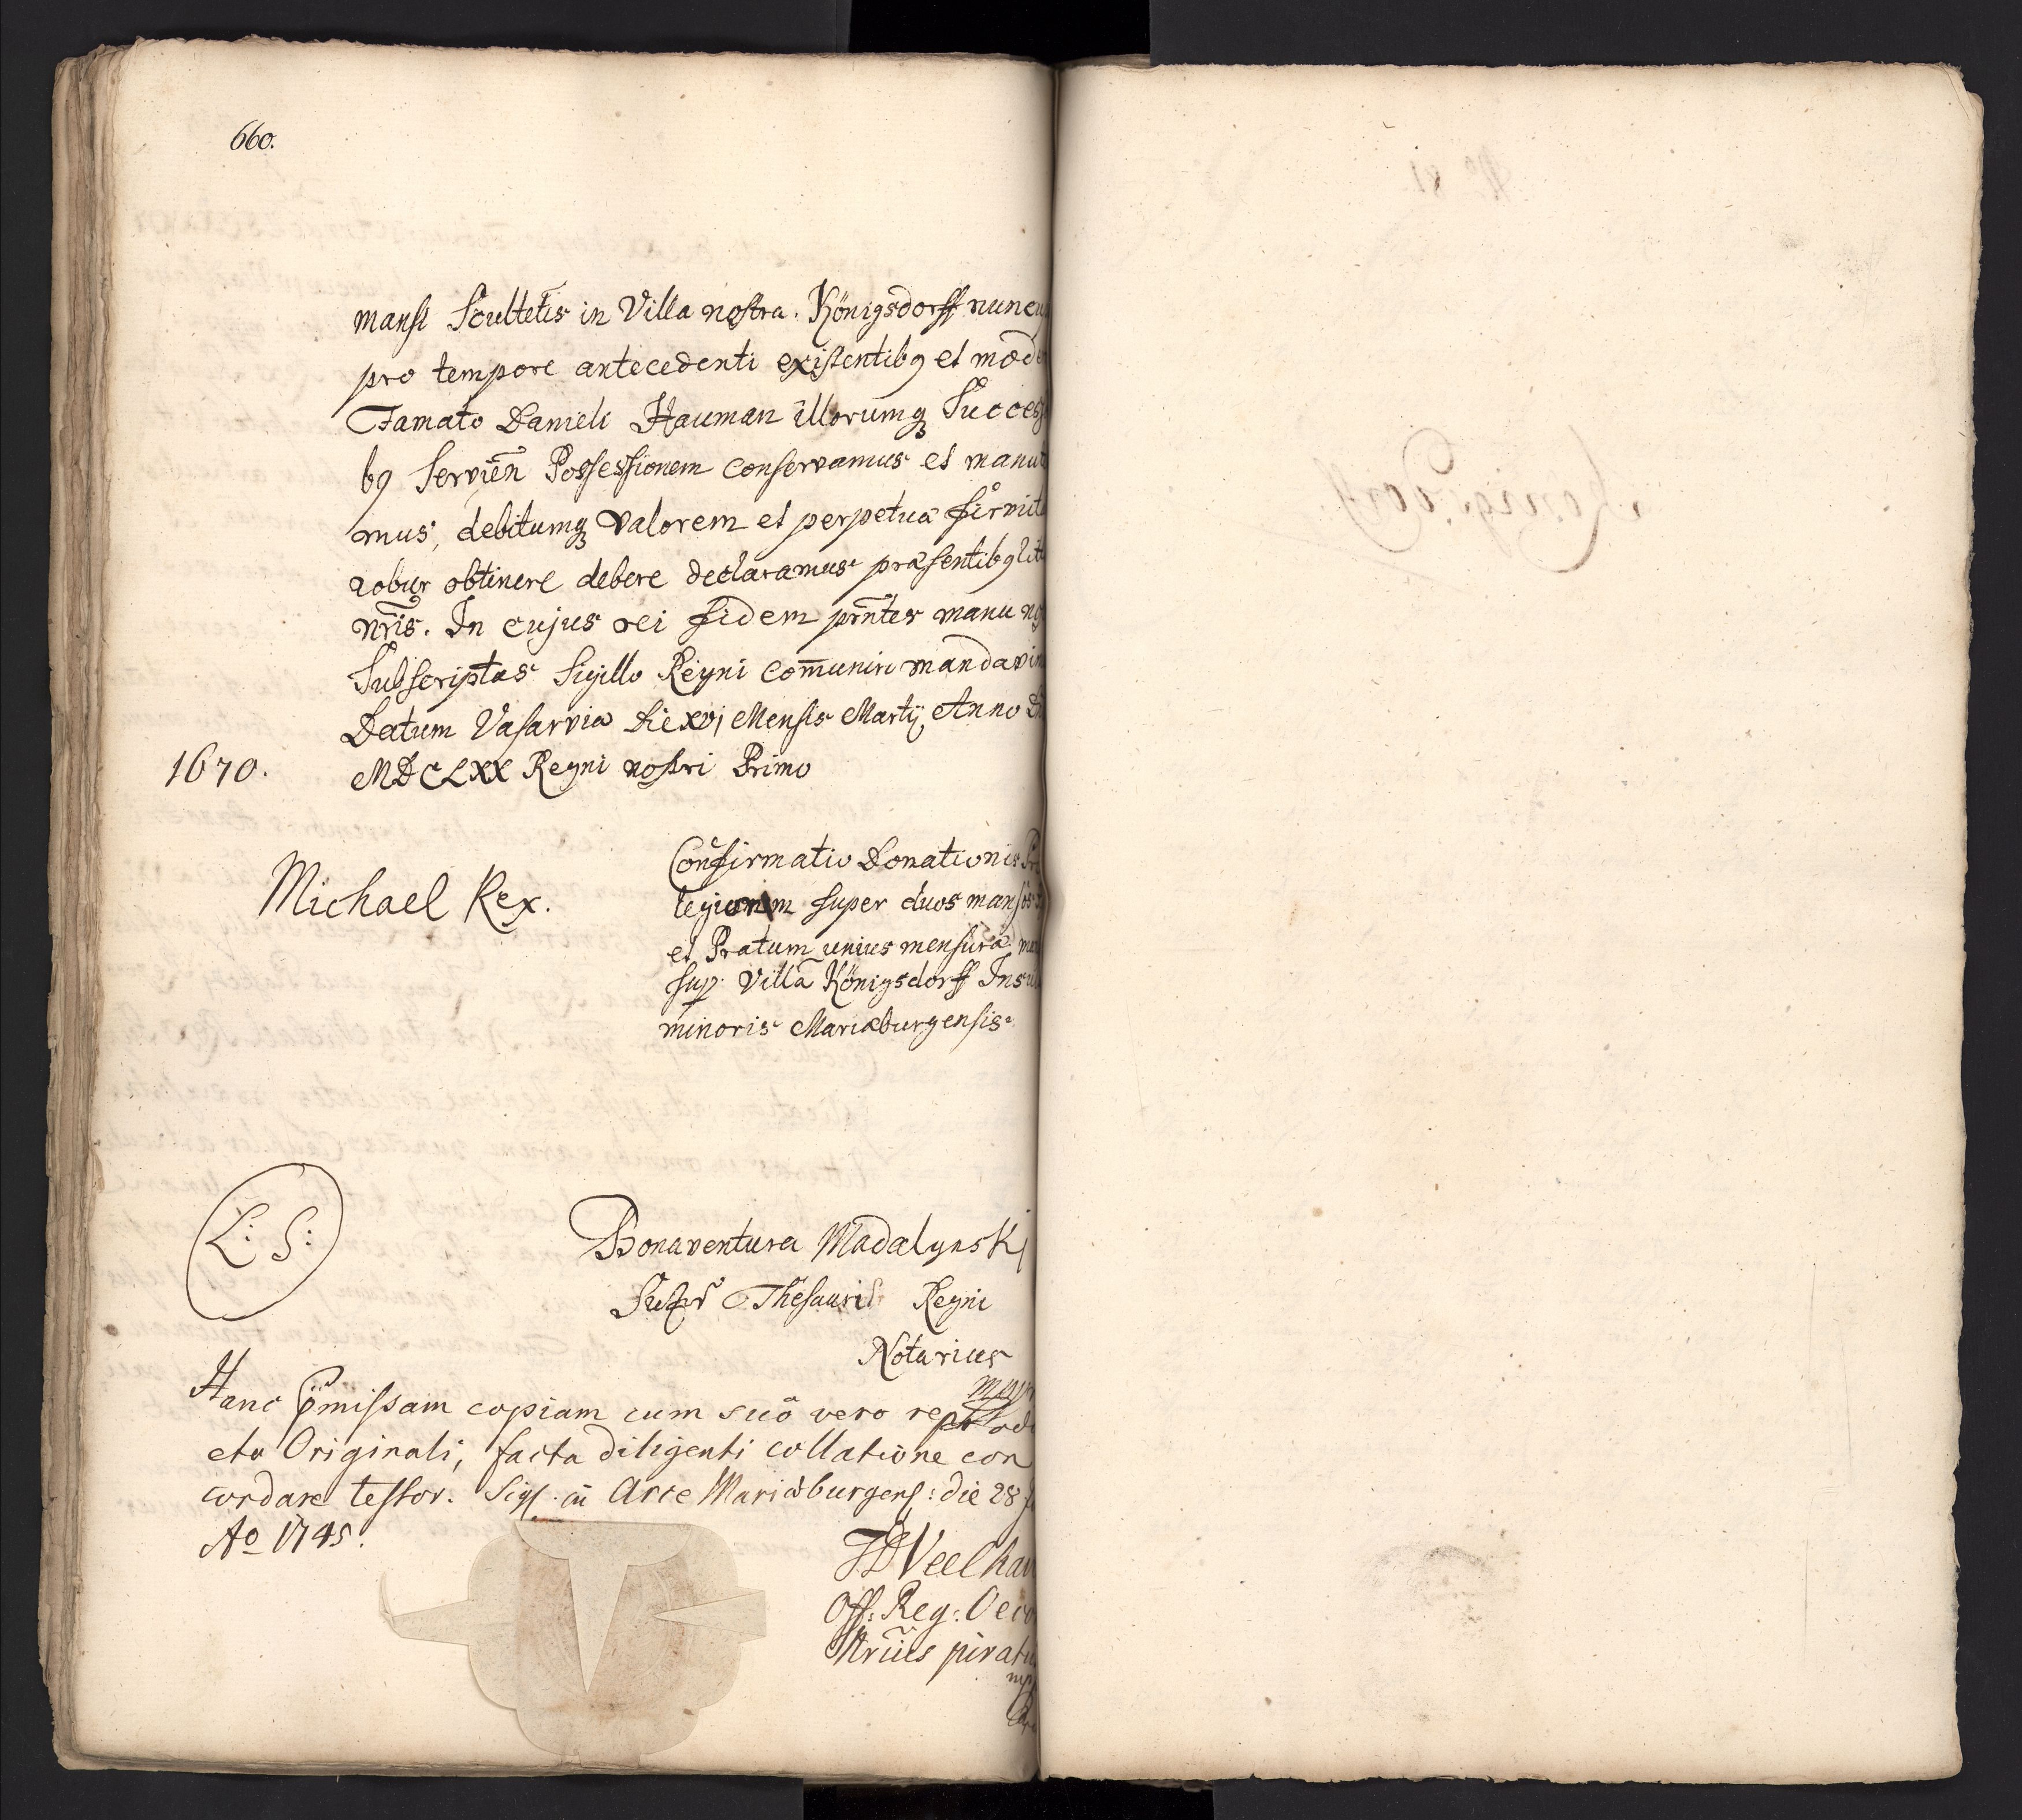 660.
mansi Scultetis in Villa nostra. Königsdorff nuncu
pro tempore antecedenti existentibꝯ et mod
Famato Danieli Hauman illorumqꝫ Succes
bꝯ Servien̄ Possessionem conservamus et manu
mus, debitumqꝫ valorem et perpetua firmit
robur obtinere debere declaramus præsentibꝯ lit
nr̃is. In cujus rei fidem pr̃ntes manu no
Subscriptas Sigillo Regni com̄uniri mandavim
Datum Varsavia Die xvj Mensis Martij Anno
1670. MDCLXX Regni nostri Primo
Michael Rex.
Confirmatio Donationis
super duos mansos
et Pratum unius mensura
sup. Villā Königsdorff Insu
minoris Mariæburgensis
L: S:
Bonaventura Madalynski
Thesauri Regni
Notarius
Hanc p̈missam copiam cum suo vero
Originali, facta diligenti collatione con
cordare testor. Sigl. in Arce Mariæburgens: die 28
Ao 1745.
Veelhau
Off: Reg: Oeco
Nr̃ius jurat
mp
N° 81
Königsdorf